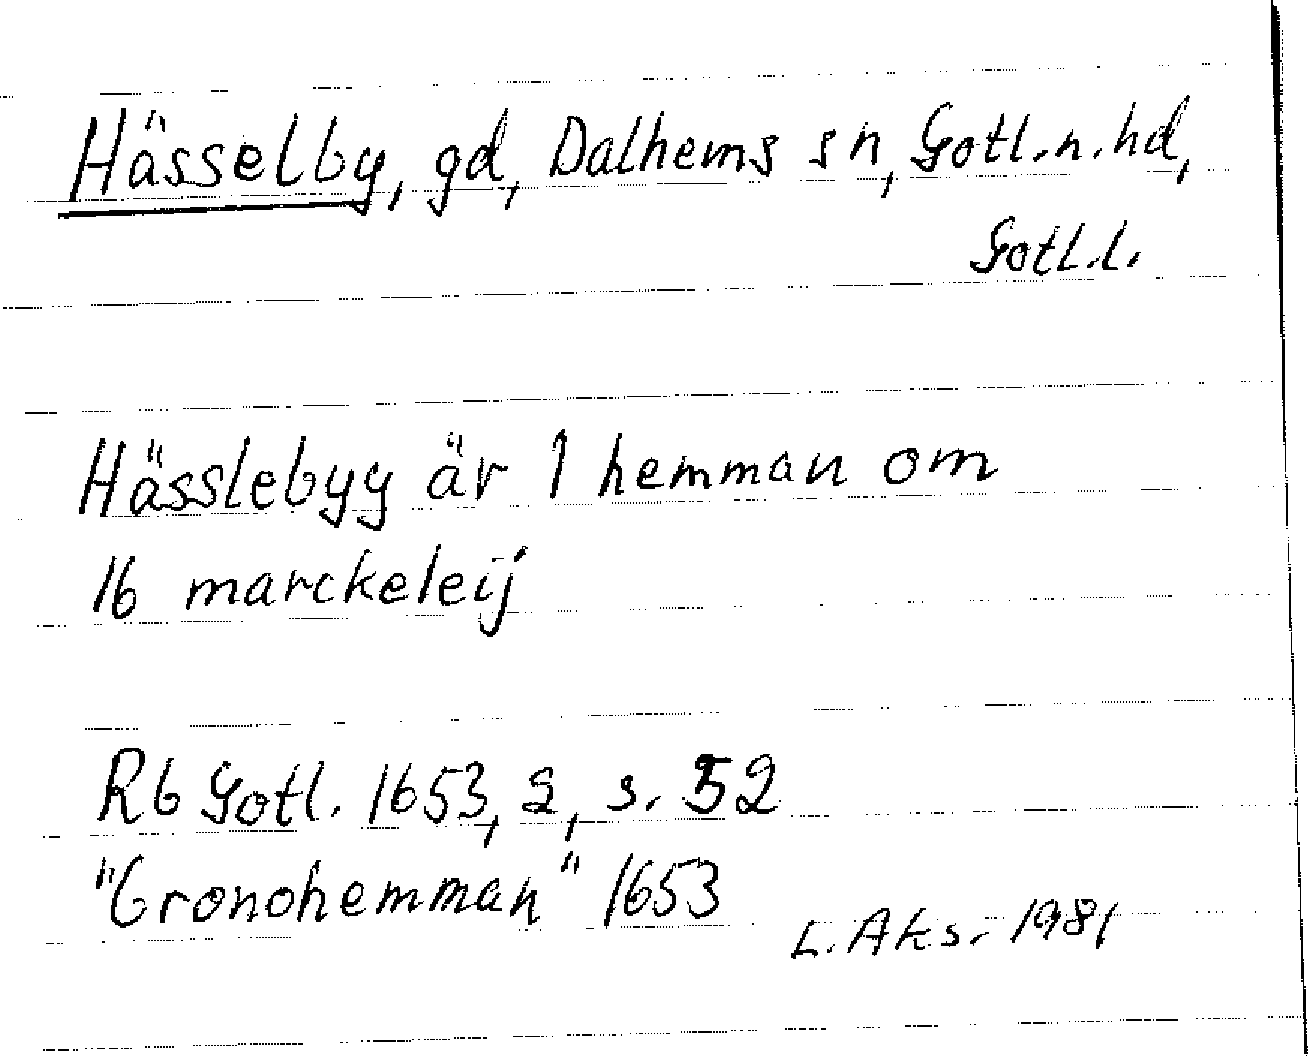 Hässelby, gd, Dalhems sn, Gotl. n. hd,
Gotl. l.
Hässlebyy är 1 hemman om
16 marckeleij
Rb Gotl. 1653, 2, s. 52
"Cronohemman" 1653
L. Aks. 1981